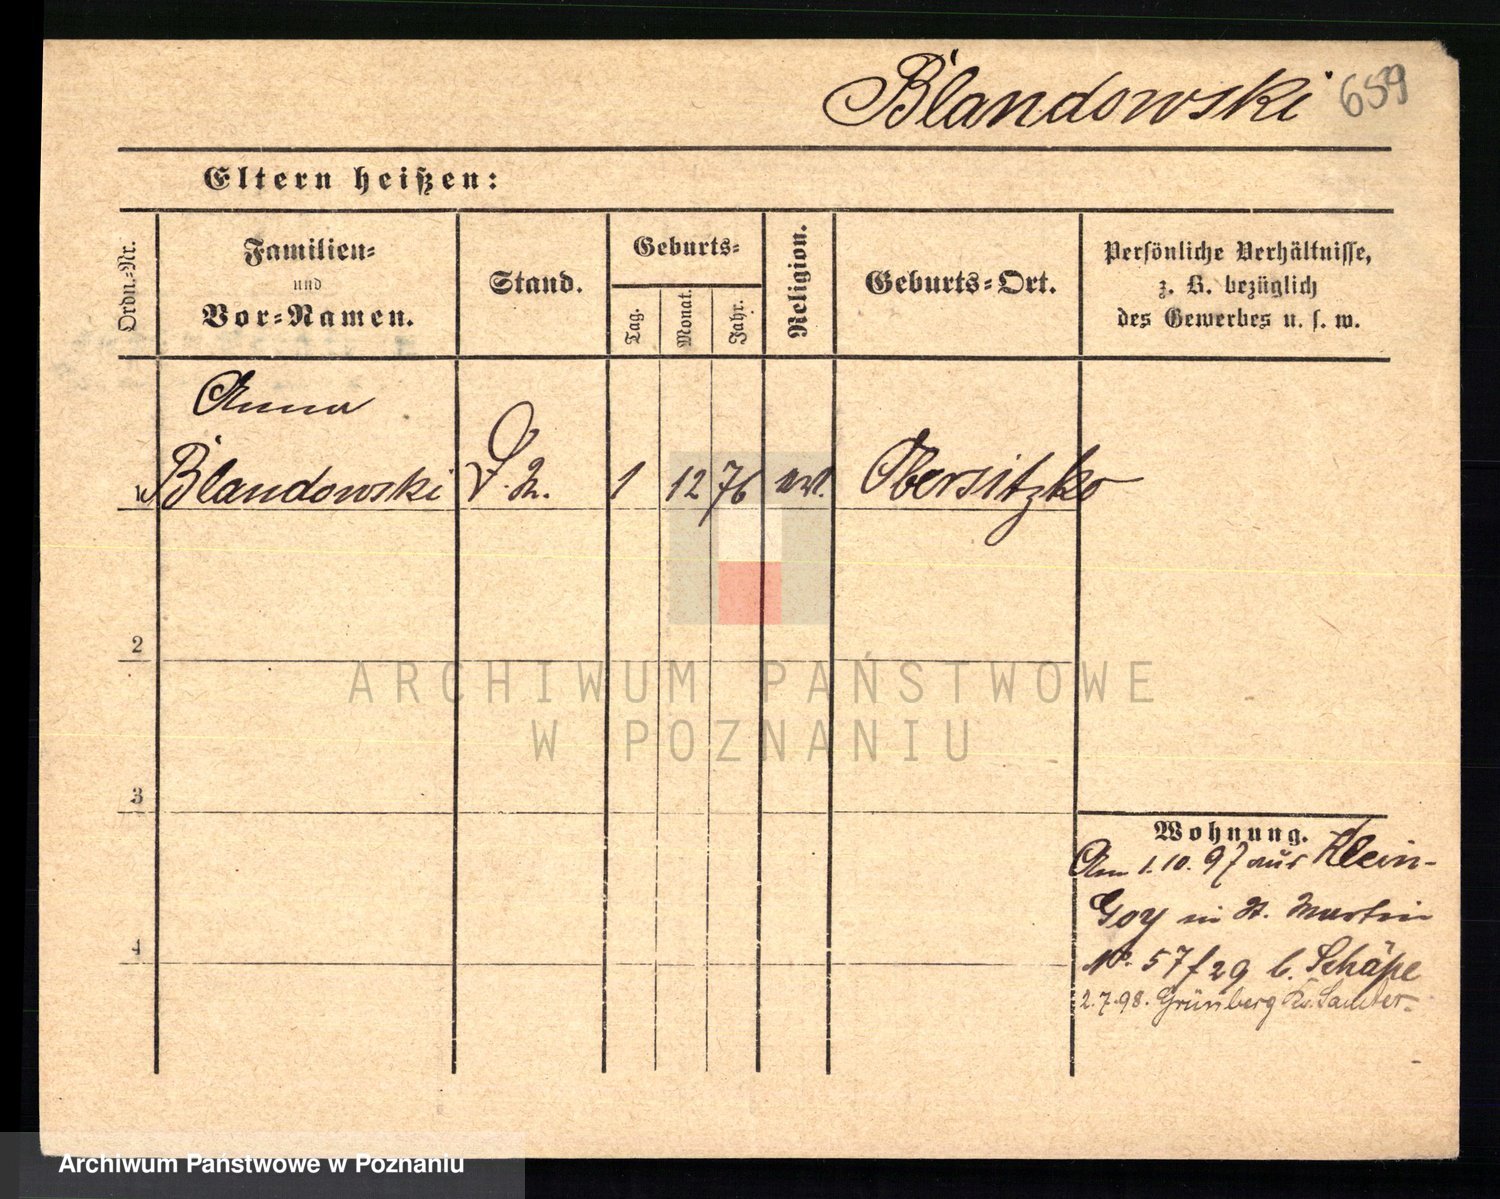 Blandowski 659
Eltern heißen:
Ordn.-Nr.
Familien-
und
Vor-Namen.
Stand.
Geburts-
Tag.
Monat.
Jahr.
Religion.
Geburts-Ort.
Persönliche Verhältnisse,
z. B. bezüglich
des Gewerbes u. s. w.
Anna
Blandowski
1 12 76
Obersitzko
2
3
4
Wohnung.
Am 1.10.97 aus Klein-
Goy in St. Martin
No. 57 f 29 b. Schäpe
2.7.98. Grünberg Kr. Samter.
ARCHIWUM PAŃSTWOWE
W POZNANIU
Archiwum Państwowe w Poznaniu